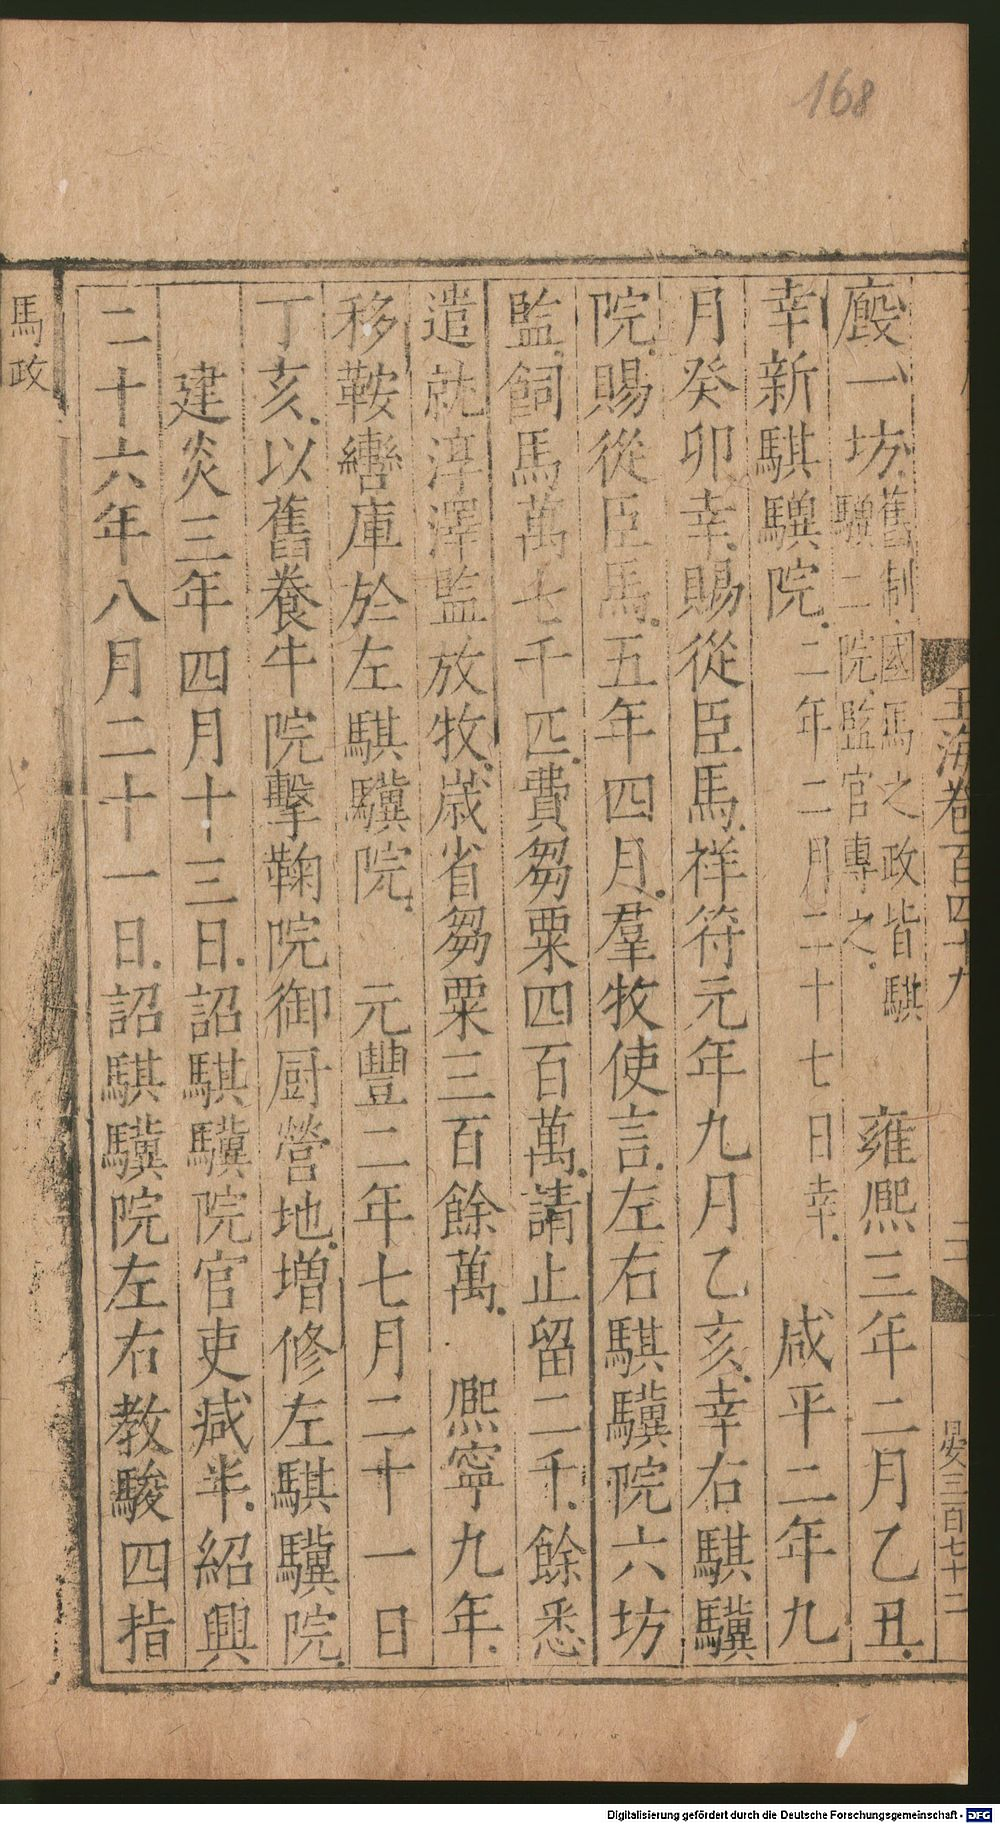 168
玉海卷百四十九
二
晏三百七十二
廄一坊舊制國馬之政皆騏驥二院監官專之雍熙三年二月乙丑
幸新騏驥院二年二月二十七日幸咸平二年九
月癸卯幸賜從臣馬祥符元年九月乙亥幸右騏驥
院賜從臣馬五年四月羣牧使言左右騏驥院六坊
監飼馬萬七千匹費芻粟四百萬請止留二千餘悉
遣就淳澤監放牧歲省芻粟三百餘萬 熙寧九年
移鞍轡庫於左騏驥院 元豐二年七月二十一日
丁亥以舊養牛院擊鞠院御厨營地增修左騏驥院
建炎三年四月十三日詔騏驥院官吏减半紹興
二十六年八月二十一日詔騏驥院左右教駿四指
馬政
Digitalisierung gefördert durch die Deutsche Forschungsgemeinschaft - DFG